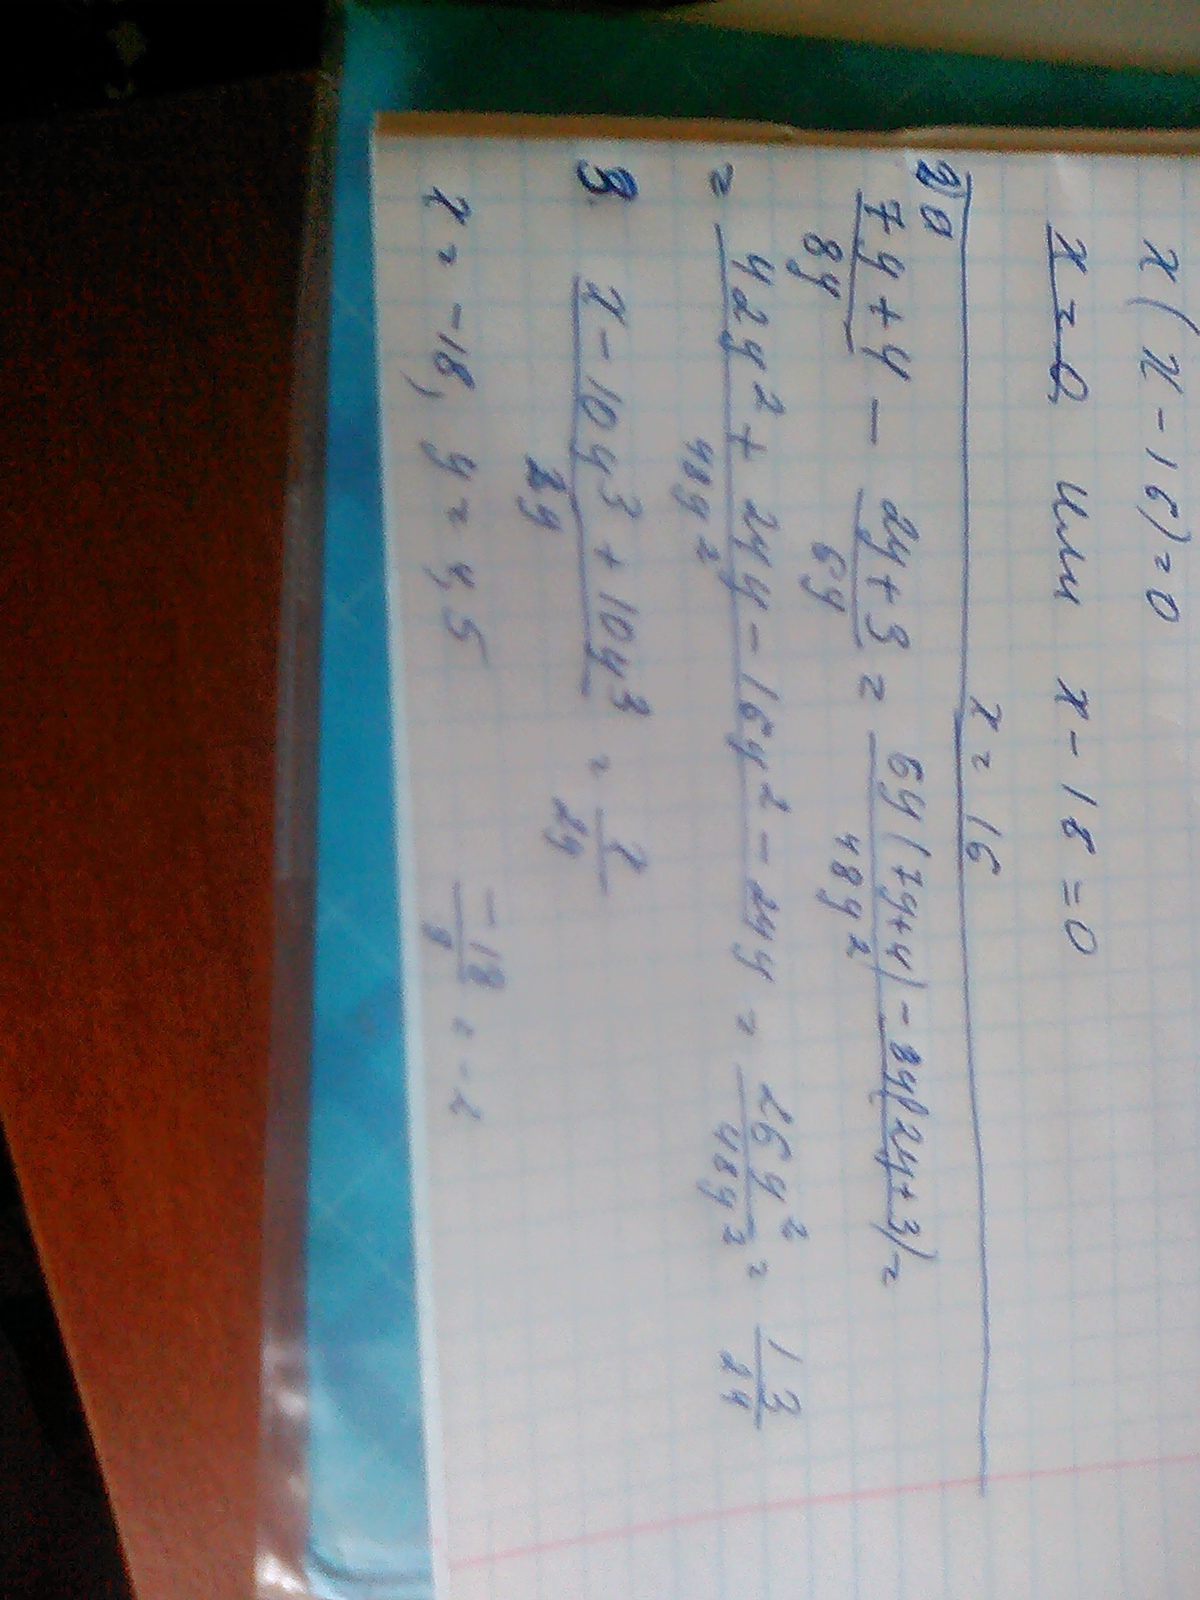 x(x-16)=0
x=0 или x-18=0
x=16
2) а
(7y+4)/(8y) - (2y+3)/(6y) = (6y(7y+4)-8y(2y+3))/(48y²) =
= (42y²+24y-16y²-24y)/(48y²) = (26y²)/(48y²) = 13/24
3. (x-10y³+10y³)/(2y) = x/(2y)
x=-18, y=4,5 -18/9=-2